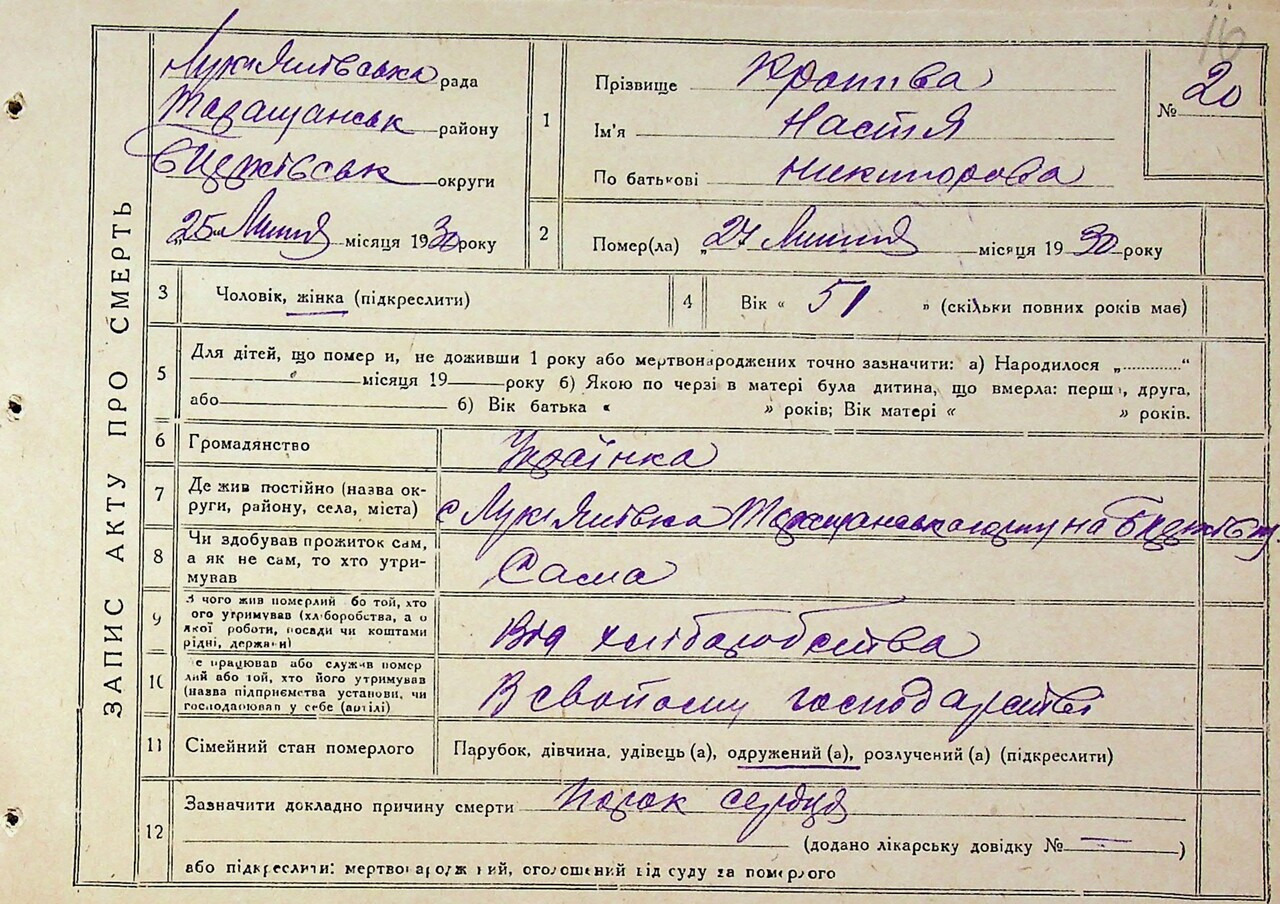 16
ЗАПИС АКТУ ПРО СМЕРТЬ
Лукіянівська рада
Таращанськ району
БЦерківськ округи
„25" Липня місяця 1930 року
1
Прізвище Кропива
Ім'я Настя
По батькові Никипорова
№ 20
2
Помер(ла) „27 Липня місяця 1930 року
3
Чоловік, жінка (підкреслити)
4
Вік « 51 » (скільки повних років має)
5
Для дітей, що помер и, не доживши 1 року або мертвонароджених точно зазначити: а) Народилося „............“
місяця 19 року б) Якою по черзі в матері була дитина, що вмерла: перш , друга,
або б) Вік батька « » років; Вік матері « » років.
6
Громадянство
Українка
7
Де жив постійно (назва ок-
руги, району, села, міста)
с Лукіянівка на
8
Чи здобував прожиток сам,
а як не сам, то хто утри-
мував
Сама
9
З чого жив померлий бо той, хто
ого утримував (хліборобства, а о
якої роботи, посади чи коштами
рідні, держави)
Від хліборобства
10
е працював або служив помер
лий або той, хто його утримував
(назва підприємства установи, чи
господарював у себе (артілі)
В свойому господарстві
11
Сімейний стан померлого
Парубок, дівчина, удівець (а), одружений (а), розлучений (а) (підкреслити)
12
Зазначити докладно причину смерти Порок сердця
(додано лікарську довідку № — )
або підкреслити: мертвонароджений, оголошений від суду за померлого